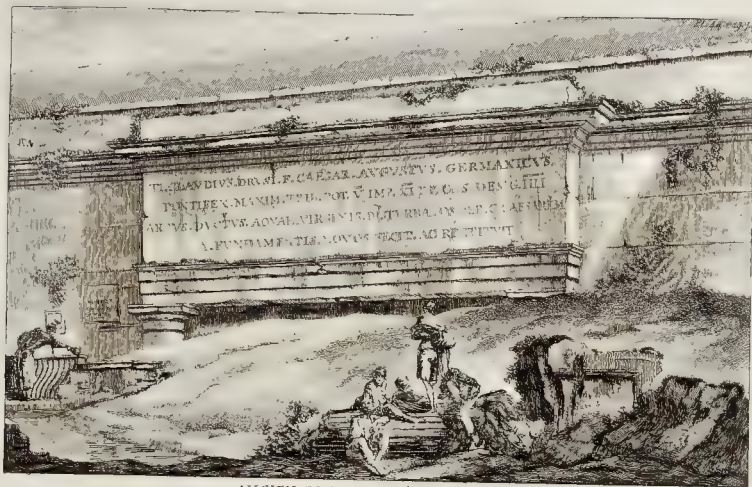 TI. CLAVDIVS. DRVSI. F. CAESAR. AVGVSTVS. GERMANICVS.
PONTIFEX. MAXIM. TRIB. POT. V. IMP. XI. P. P. COS. DESIG. IIII
ARCVS. DVCTVS. AQVAE. VIRGINIS. CAESAREM
A. FVNDAMENTIS. NOVOS. FECIT. AC. RESTITVIT